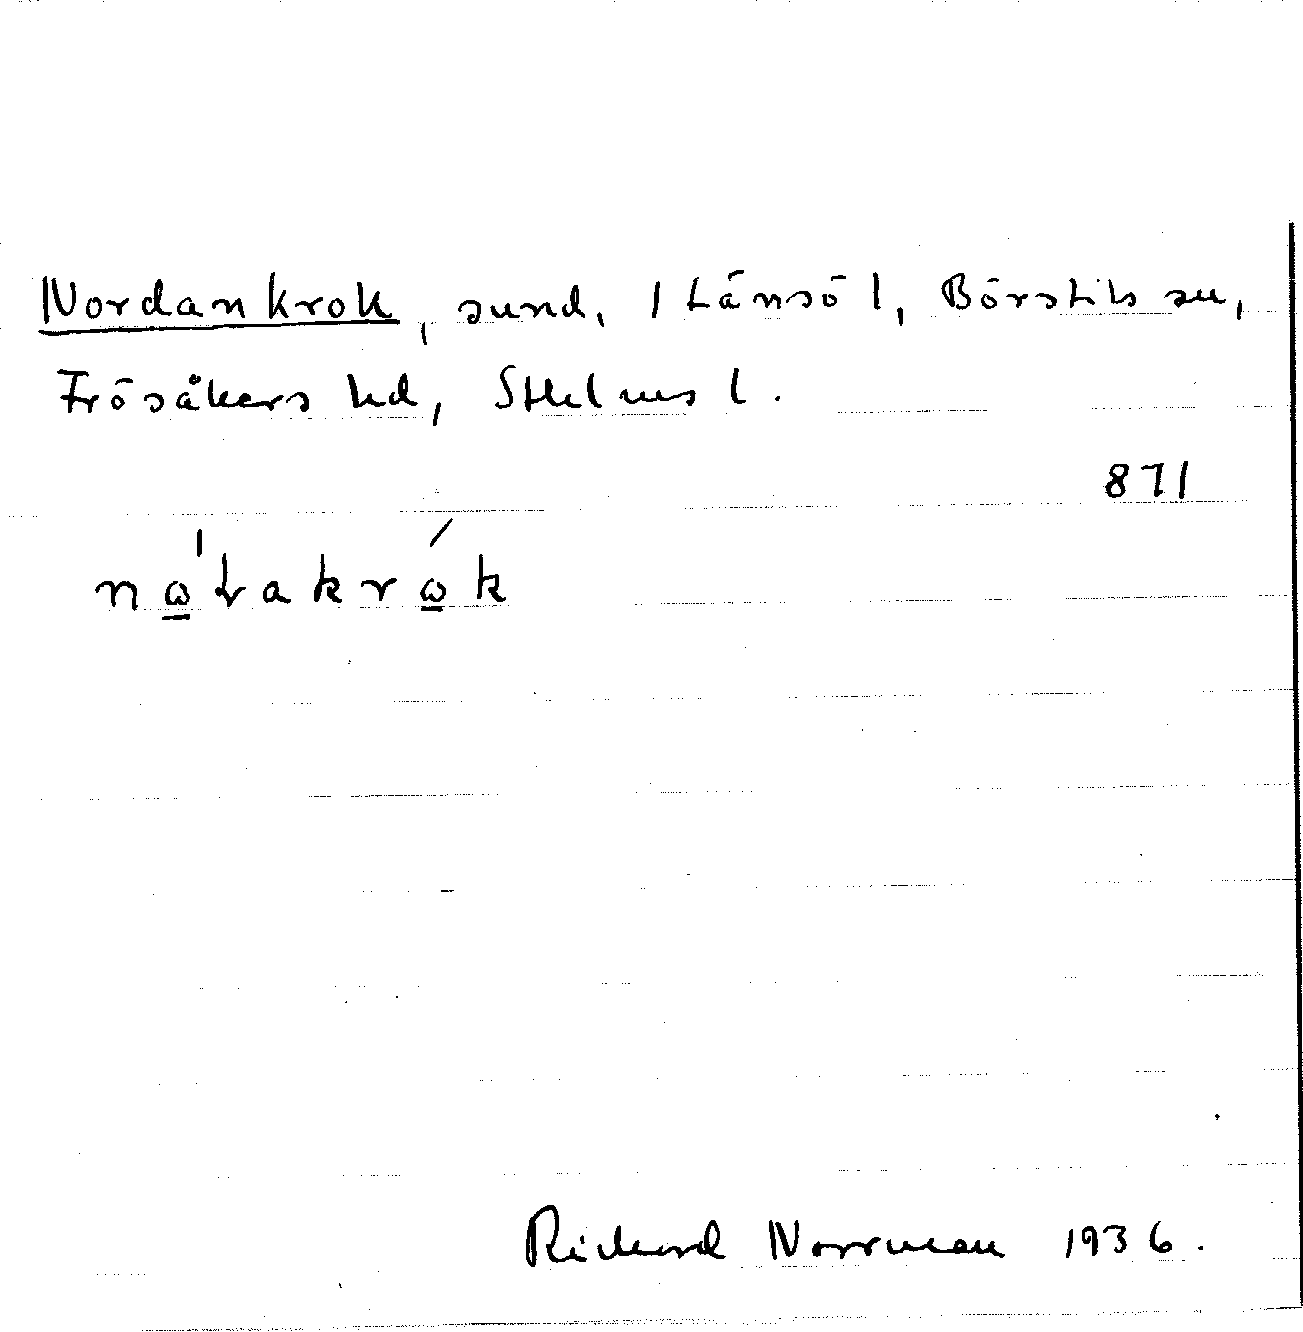 Nordankrok, sund, / Länsö /, Börstils sn,
Frösåkers hd, Sthlms l.
871
nω̲'ƚakrώ̲k
Rickard Norrman 1936.